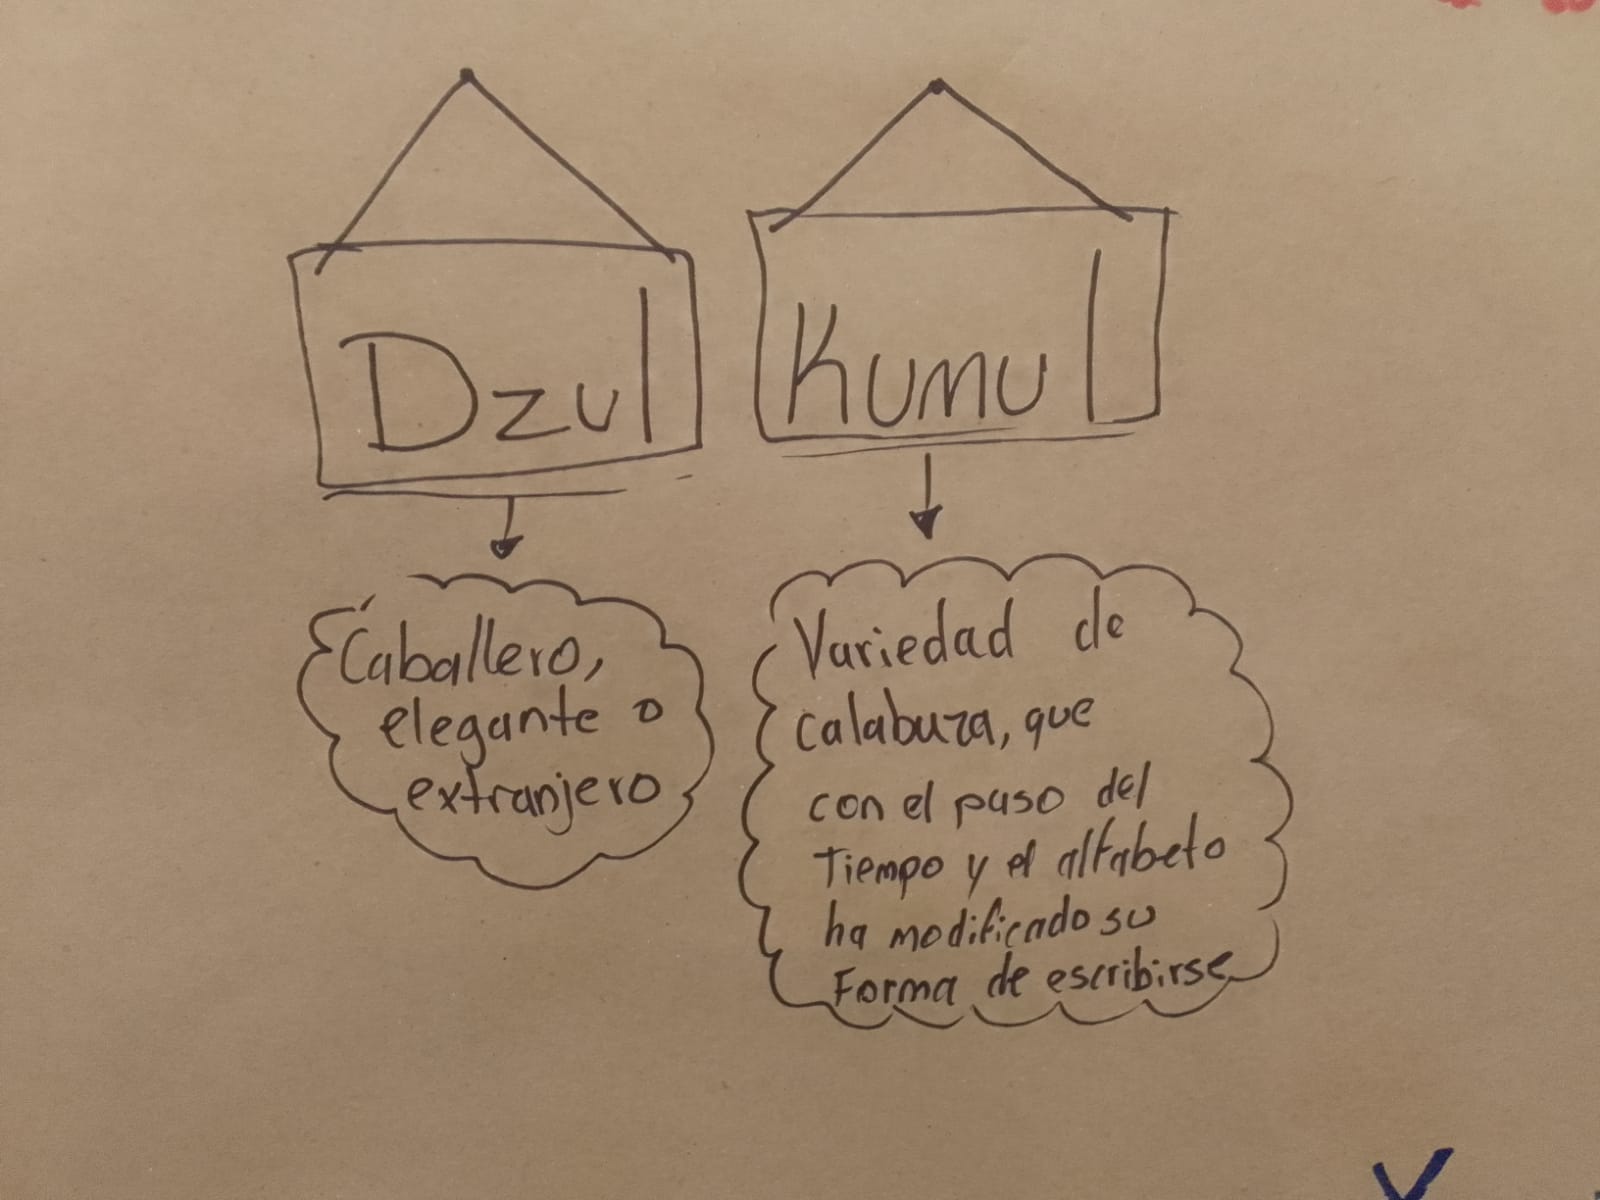 Dzul
Caballero,
elegante o
extranjero
Kumul
Variedad de
calabaza, que
con el paso del
Tiempo y el alfabeto
ha modificado su
Forma de escribirse